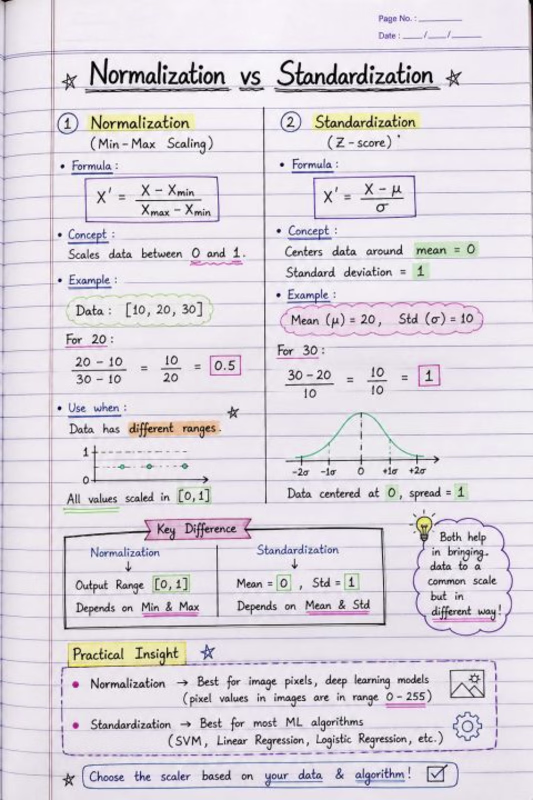 Page No. : ________
Date : ___/___/_____
☆ Normalization vs Standardization ☆
① Normalization
(Min-Max Scaling)
• Formula :
X' = (X − Xmin) / (Xmax − Xmin)
• Concept :
Scales data between 0 and 1.
• Example :
Data : [10, 20, 30]
For 20 :
(20 − 10) / (30 − 10) = 10 / 20 = 0.5
• Use when : ☆
Data has different ranges.
1
0
All values scaled in [0,1]
② Standardization
(Z-score)
• Formula :
X' = (X − μ) / σ
• Concept :
Centers data around mean = 0
Standard deviation = 1
• Example :
Mean (μ) = 20, Std (σ) = 10
For 30 :
(30 − 20) / 10 = 10 / 10 = 1
−2σ −1σ 0 +1σ +2σ
Data centered at 0, spread = 1
Key Difference
Normalization
↓
Output Range [0,1]
Depends on Min & Max
Standardization
↓
Mean = 0 , Std = 1
Depends on Mean & Std
Both help
in bringing
data to a
common scale
but in
different way!
Practical Insight ☆
• Normalization → Best for image pixels, deep learning models
(pixel values in images are in range 0-255)
• Standardization → Best for most ML algorithms
(SVM, Linear Regression, Logistic Regression, etc.)
☆ Choose the scaler based on your data & algorithm! ☑